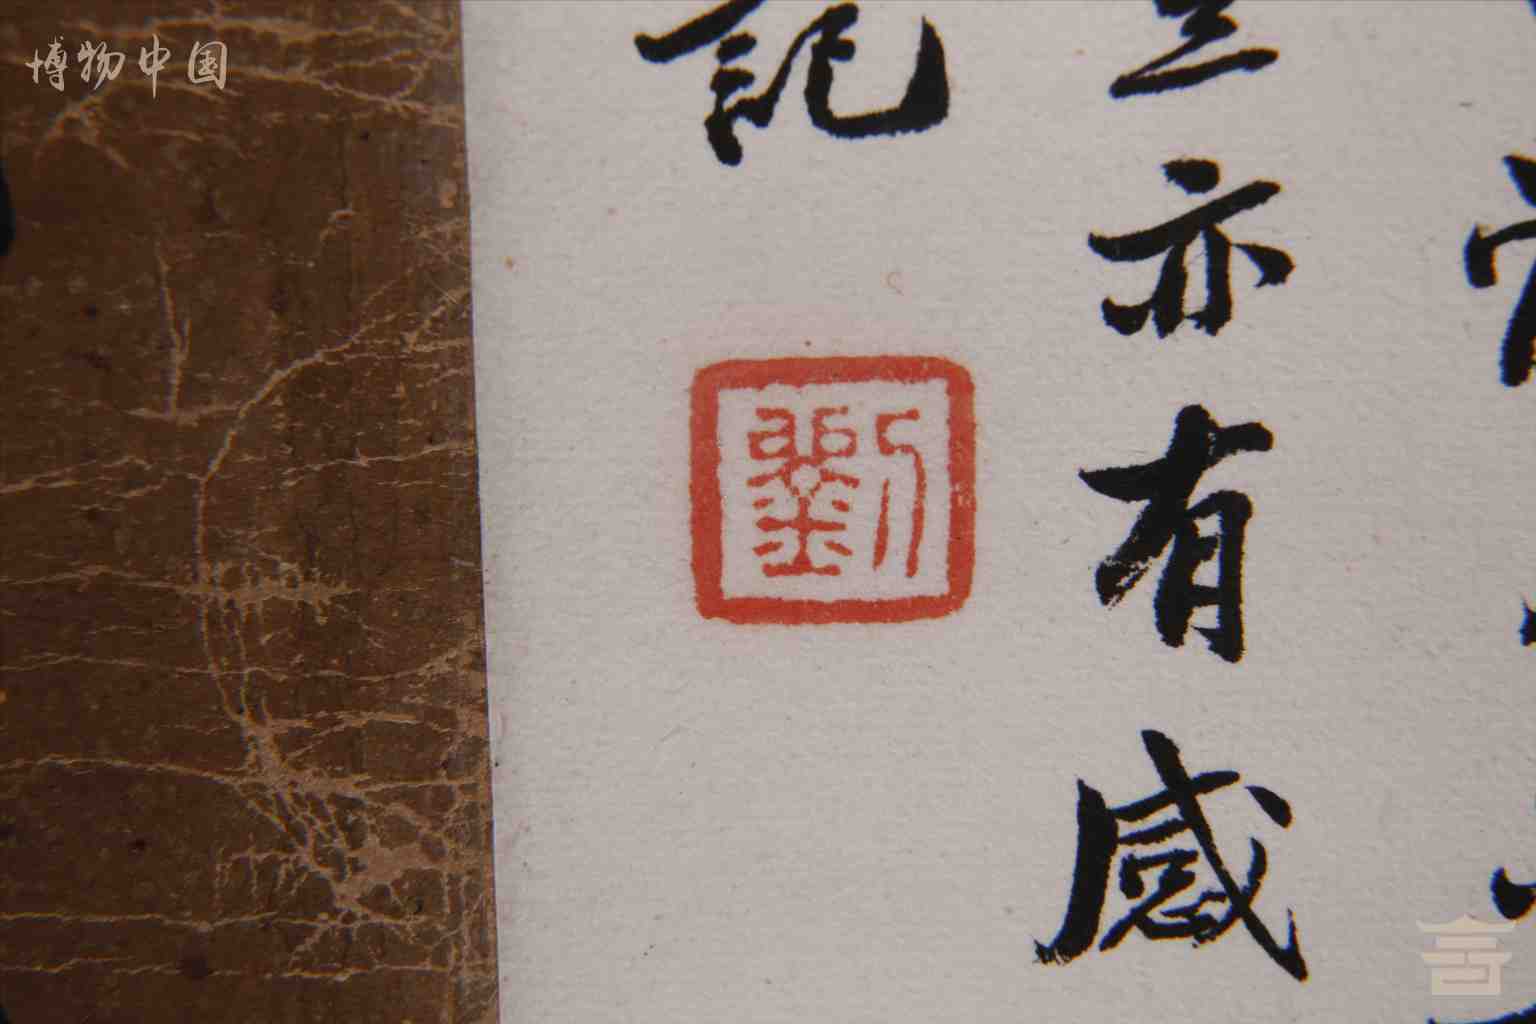 博物中国
亦有感
記
劉